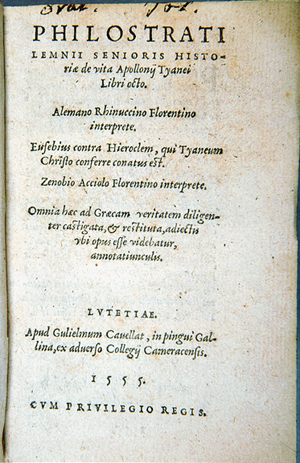 PHILOSTRATI
LEMNII SENIORIS HISTO-
riæ de vita Apollonij Tyanei
Libri octo.
Alemano Rhinuccino Florentino
interprete.
Eusebius contra Hieroclem, qui Tyaneum
Christo conferre conatus est.
Zenobio Acciolo Florentino interprete.
Omnia hæc ad Græcam veritatem diligen-
ter castigata, & restituta, adiectis
vbi opus esse videbatur,
annotatiunculis.
LVTETIAE.
Apud Gulielmum Cauellat, in pingui Gal-
lina, ex aduerso Collegij Cameracensis.
1555.
CVM PRIVILEGIO REGIS.